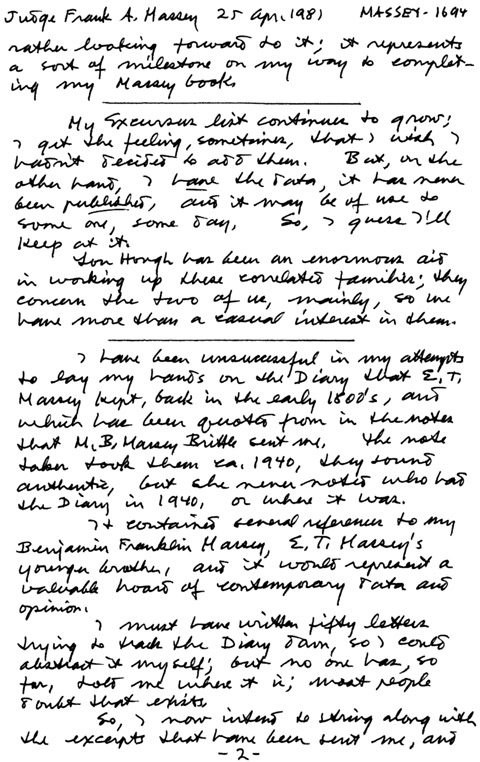 Judge Frank A. Massey 25 Apr, 1981 MASSEY-1694
rather looking forward to it; it represents
a sort of milestone on my way to complet-
ing my Massey books.
My Excursus list continues to grow;
I get the feeling, sometimes, that I wish I
hadn't decided to add them. But, on the
other hand, I have the data, it has never
been published, and it may be of use to
some one, some day. So, I guess I'll
keep at it.
Lon Hough has been an enormous aid
in working up these correlated families; they
concern the two of us, mainly, so we
have more than a casual interest in them.
I have been unsuccessful in my attempts
to lay my hands on the Diary that E.T.
Massey kept, back in the early 1800's, and
which has been quoted from in the notes
that M.B. Massey Brittle sent me. The note
taker took them ca. 1940, they sound
authentic, but she never noted who had
the Diary in 1940, or where it was.
It contained several references to my
Benjamin Franklin Massey, E.T. Massey's
younger brother, and it would represent a
valuable hoard of contemporary data and
opinion.
I must have written fifty letters
trying to track the Diary down, so I could
abstract it myself; but no one has, so
far, told me where it is; most people
doubt that exists.
So, I now intend to string along with
the excerpts that have been sent me, and
-2-